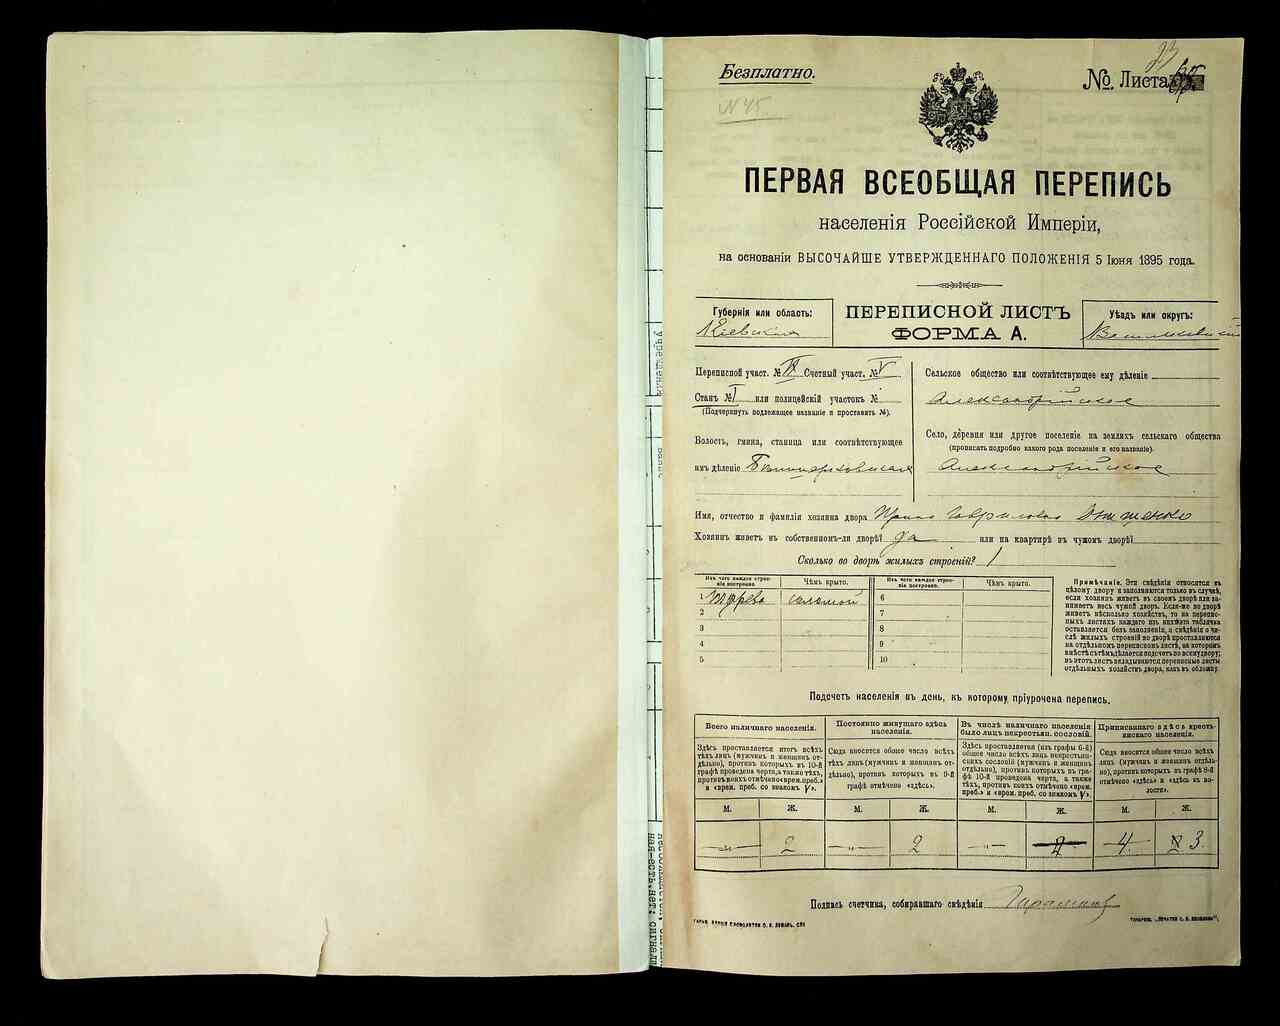 23
Безплатно.
№. Листа
N 45.
ПЕРВАЯ ВСЕОБЩАЯ ПЕРЕПИСЬ
населенія Россійской Имперіи,
на основаніи ВЫСОЧАЙШЕ УТВЕРЖДЕННАГО ПОЛОЖЕНІЯ 5 Іюня 1895 года.
Губернія или область:
Кіевская
ПЕРЕПИСНОЙ ЛИСТЪ
ФОРМА А.
Уѣздъ или округъ:
Васильковскій
Переписной участ. № Счетный участ. № V
Станъ № I или полицейскій участокъ №
(Подчеркнуть подлежащее названіе и проставить №).
Волость, гмина, станица или соотвѣтствующее
имъ дѣленіе
Сельское общество или соотвѣтствующее ему дѣленіе
Александрійское
Село, деревня или другое поселеніе на земляхъ сельскаго общества
(прописать подробно какого рода поселеніе и его названіе).
Александрійское
Имя, отчество и фамилія хозяина двора Гавриловна Онищенко
Хозяинъ живетъ въ собственномъ-ли дворѣ? да или на квартирѣ въ чужомъ дворѣ?
Сколько во дворѣ жилыхъ строеній? 1
Изъ чего каждое строе-
ніе построено.
Чѣмъ крыто.
Изъ чего каждое строе-
ніе построено.
Чѣмъ крыто.
1 дерево соломой 6
2 7
3 8
4 9
5 10
Примѣчаніе. Эти свѣдѣнія относятся къ
цѣлому двору и заполняются только въ случаѣ,
если хозяинъ живетъ въ своемъ дворѣ или за-
нимаетъ весь чужой дворъ. Если-же во дворѣ
живетъ нѣсколько хозяйствъ, то на перепис-
ныхъ листахъ каждаго изъ нихъ эта табличка
оставляется безъ заполненія, а свѣдѣнія о чи-
слѣ жилыхъ строеній во дворѣ проставляются
на отдѣльномъ переписномъ листѣ, на которомъ
вмѣстѣ съ тѣмъ дѣлается подсчетъ по всему двору;
въ этотъ листъ вкладываются переписные листы
отдѣльныхъ хозяйствъ двора, какъ въ обложку.
Подсчетъ населенія въ день, къ которому пріурочена перепись.
Всего наличнаго населенія.
Здѣсь проставляется итогъ всѣхъ
тѣхъ лицъ (мужчинъ и женщинъ от-
дѣльно), противъ которыхъ въ 10-й
графѣ проведена черта, а также тѣхъ,
противъ коихъ отмѣчено «врем. преб.»
и «врем. преб. со знакомъ V».
Постоянно живущаго здѣсь
населенія.
Сюда вносится общее число всѣхъ
тѣхъ лицъ (мужчинъ и женщинъ от-
дѣльно), противъ которыхъ въ 9-й
графѣ отмѣчено «здѣсь».
Въ числѣ наличнаго населенія
было лицъ некрестьян. сословій.
Здѣсь проставляется (изъ графы 6-й)
общее число всѣхъ лицъ некрестьян-
скихъ сословій (мужчинъ и женщинъ
отдѣльно), противъ которыхъ въ гра-
фѣ 10-й проведена черта, а также
тѣхъ, противъ коихъ отмѣчено «врем.
преб.» и «врем. преб. со знакомъ V».
Приписаннаго здѣсь кресть-
янскаго населенія.
Сюда вносится общее число всѣхъ
лицъ (мужчинъ и женщинъ отдѣль-
но), противъ которыхъ въ графѣ 8-й
отмѣчено «здѣсь» и «здѣсь къ во-
лости».
М. Ж. М. Ж. М. Ж. М. Ж.
—„— 2 —„— 2 —„— 4 3
Подпись счетчика, собиравшаго свѣдѣнія